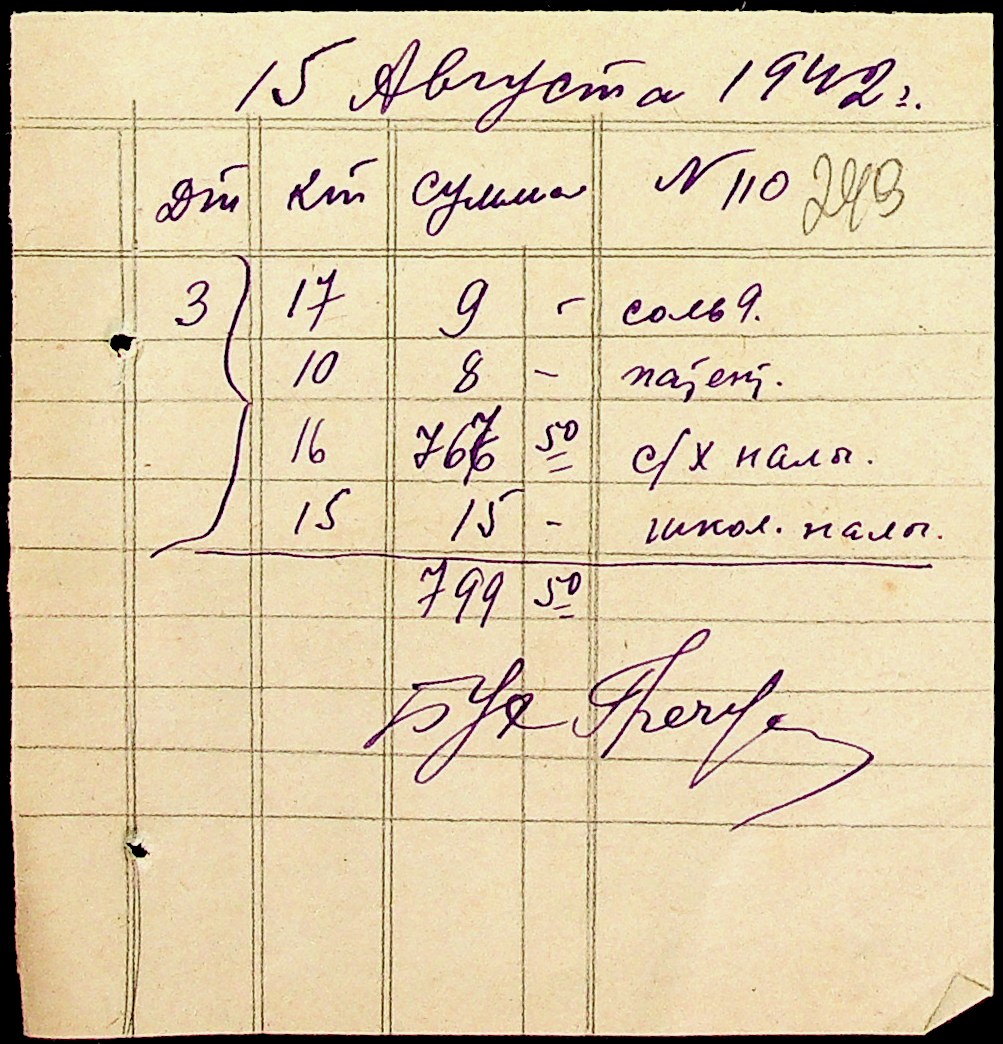 15 Августа 1942 г.
Дт Кт сумма N 110 243
3 17 9 - соль 9.
10 8 - патент.
16 767 50 с/х налог.
15 15 - школ. налог.
799 50
Бух